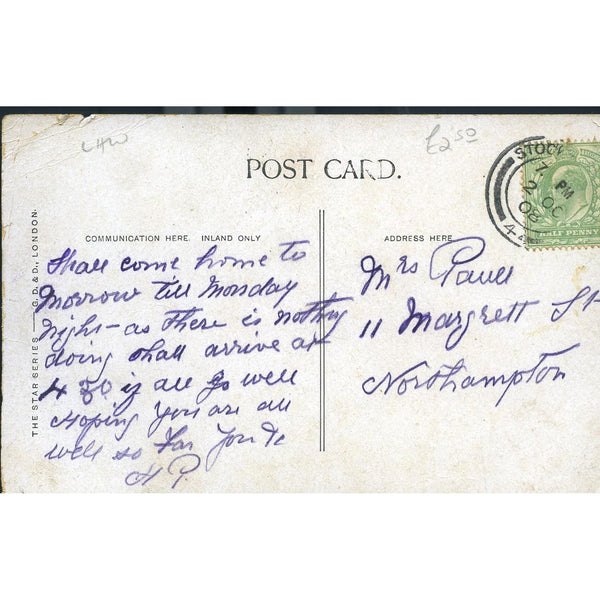 LHW
£2.50
POST CARD.
COMMUNICATION HERE. INLAND ONLY
ADDRESS HERE.
THE STAR SERIES — G. D. & D., LONDON.
STOCK
7 PM
2 OC
08
HALF PENNY
Shall come home to
Morrow till Monday
Night as there is nothing
doing shall arrive at
4 30 if all go well
Hoping you are all
well so far
H P.
Mrs Paull
11 Margrett St
Northampton